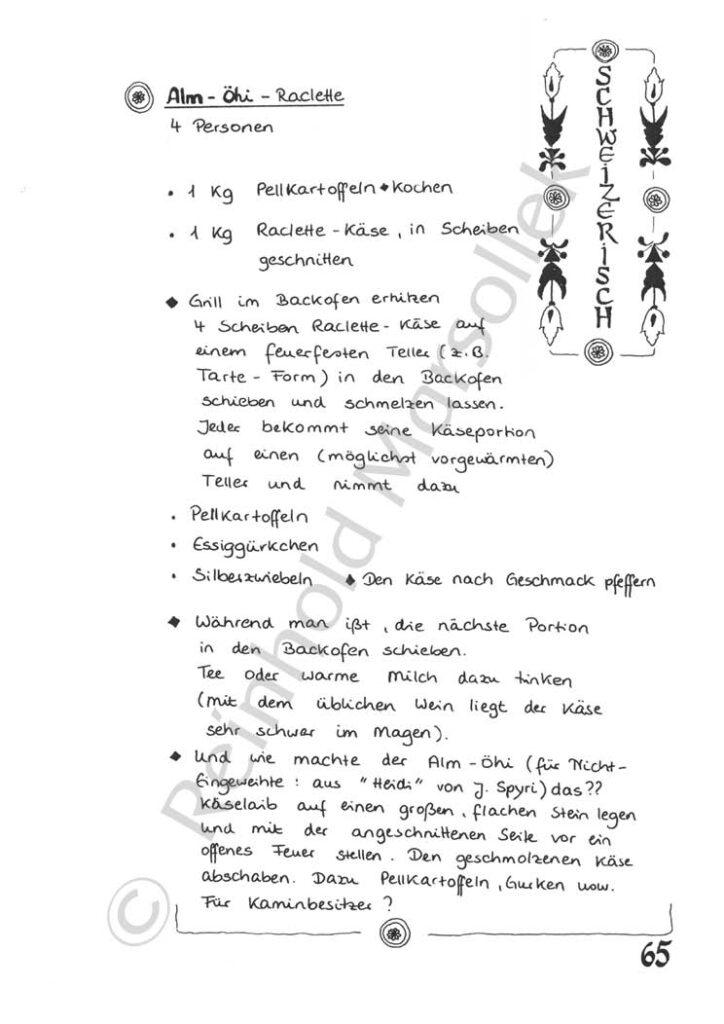 Alm-Öhi-Raclette
4 Personen
• 1 Kg Pellkartoffeln ◆ Kochen
• 1 Kg Raclette-Käse, in Scheiben
geschnitten
◆ Grill im Backofen erhitzen
4 Scheiben Raclette-Käse auf
einem feuerfesten Teller (z.B.
Tarte-Form) in den Backofen
schieben und schmelzen lassen.
Jeder bekommt seine Käseportion
auf einen (möglichst vorgewärmten)
Teller und nimmt dazu
• Pellkartoffeln
• Essiggürkchen
• Silberzwiebeln ◆ Den Käse nach Geschmack pfeffern
◆ Während man ißt, die nächste Portion
in den Backofen schieben.
Tee oder warme Milch dazu tinken
(mit dem üblichen Wein liegt der Käse
sehr schwer im Magen).
◆ Und wie machte der Alm-Öhi (für Nicht-
Eingeweihte: aus "Heidi" von J. Spyri) das??
Käselaib auf einen großen, flachen Stein legen
und mit der angeschnittenen Seite vor ein
offenes Feuer stellen. Den geschmolzenen Käse
abschaben. Dazu Pellkartoffeln, Gurken usw.
Für Kaminbesitzer?
SCHWEIZERISCH
65
© Reinhold Marsollek